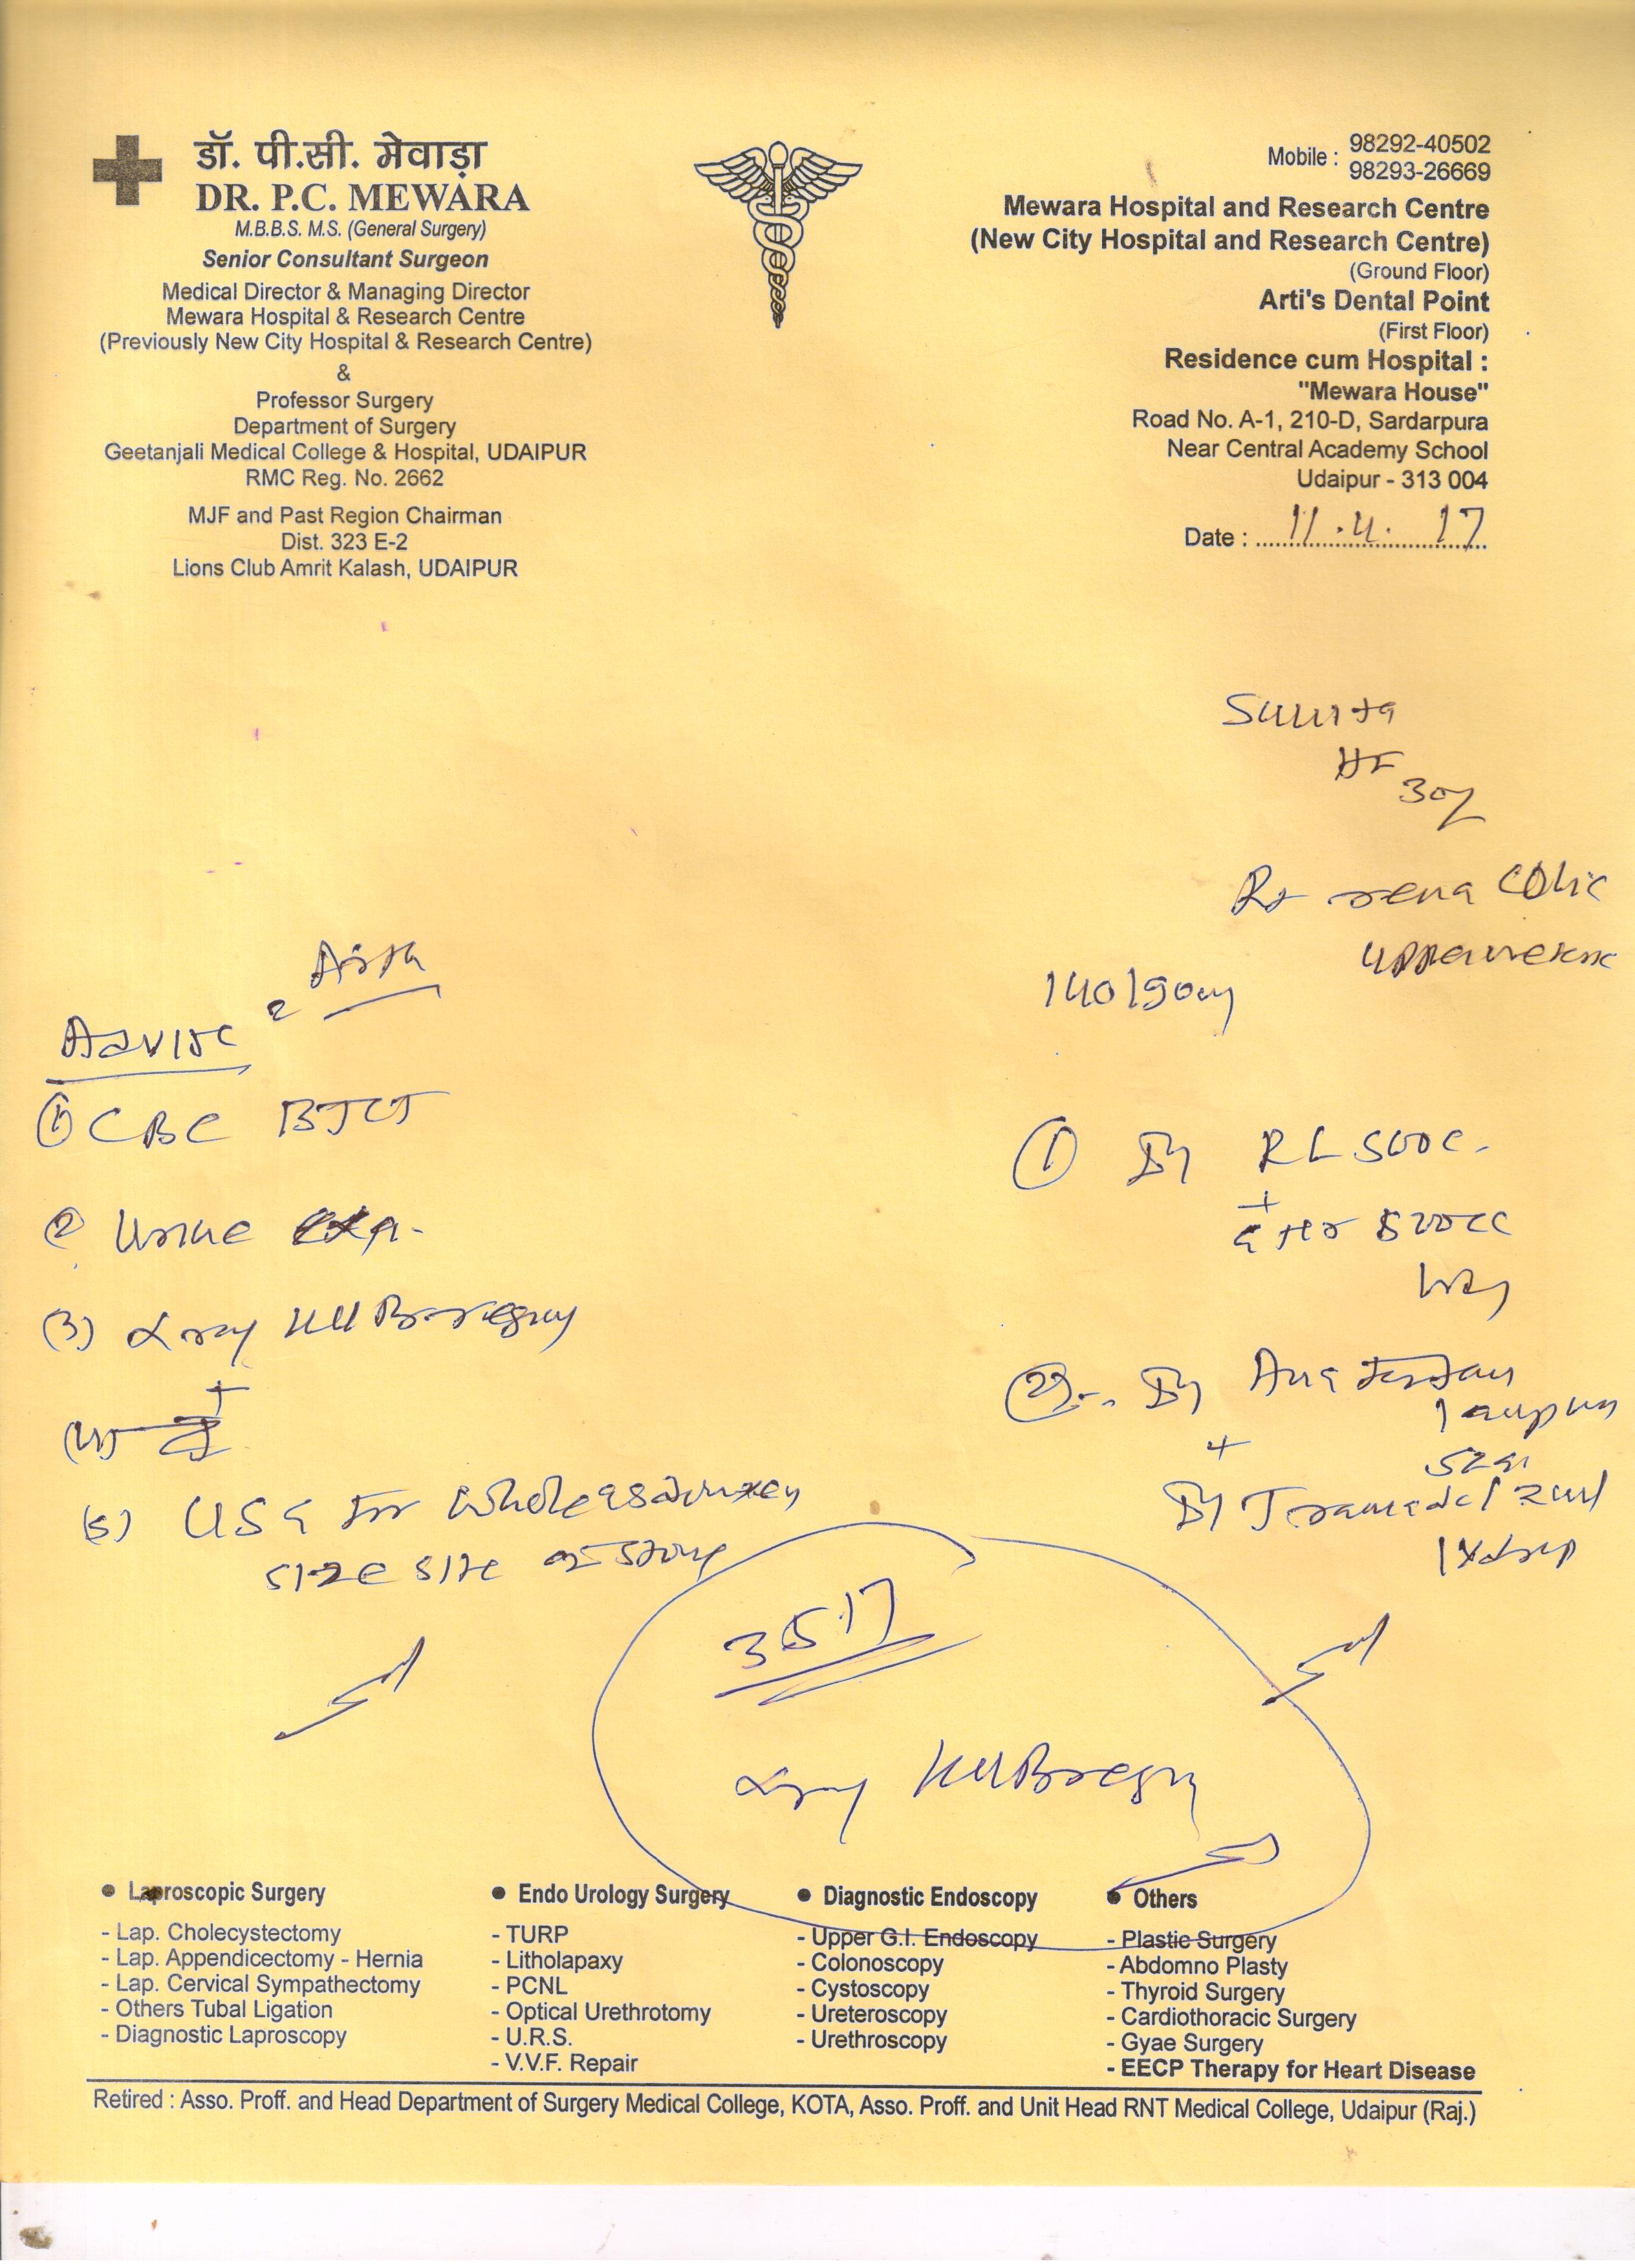 डॉ. पी.सी. मेवाड़ा
DR. P.C. MEWARA
M.B.B.S. M.S. (General Surgery)
Senior Consultant Surgeon
Medical Director & Managing Director
Mewara Hospital & Research Centre
(Previously New City Hospital & Research Centre)
&
Professor Surgery
Department of Surgery
Geetanjali Medical College & Hospital, UDAIPUR
RMC Reg. No. 2662
MJF and Past Region Chairman
Dist. 323 E-2
Lions Club Amrit Kalash, UDAIPUR
Mobile : 98292-40502
98293-26669
Mewara Hospital and Research Centre
(New City Hospital and Research Centre)
(Ground Floor)
Arti's Dental Point
(First Floor)
Residence cum Hospital :
"Mewara House"
Road No. A-1, 210-D, Sardarpura
Near Central Academy School
Udaipur - 313 004
Date : 11.4.17
30y
Colic
140/90
Advise
① CBC BTCT
② Urine
(3) Xray KUB region
+
(4)
(5) USG for whole
size site of stone
① RL 500c.
+
500cc
②
+
Tramadol 2ml
3 5 17
Xray KUB region
● Laproscopic Surgery
- Lap. Cholecystectomy
- Lap. Appendicectomy - Hernia
- Lap. Cervical Sympathectomy
- Others Tubal Ligation
- Diagnostic Laproscopy
● Endo Urology Surgery
- TURP
- Litholapaxy
- PCNL
- Optical Urethrotomy
- U.R.S.
- V.V.F. Repair
● Diagnostic Endoscopy
- Upper G.I. Endoscopy
- Colonoscopy
- Cystoscopy
- Ureteroscopy
- Urethroscopy
● Others
- Plastic Surgery
- Abdomno Plasty
- Thyroid Surgery
- Cardiothoracic Surgery
- Gyae Surgery
- EECP Therapy for Heart Disease
Retired : Asso. Proff. and Head Department of Surgery Medical College, KOTA, Asso. Proff. and Unit Head RNT Medical College, Udaipur (Raj.)